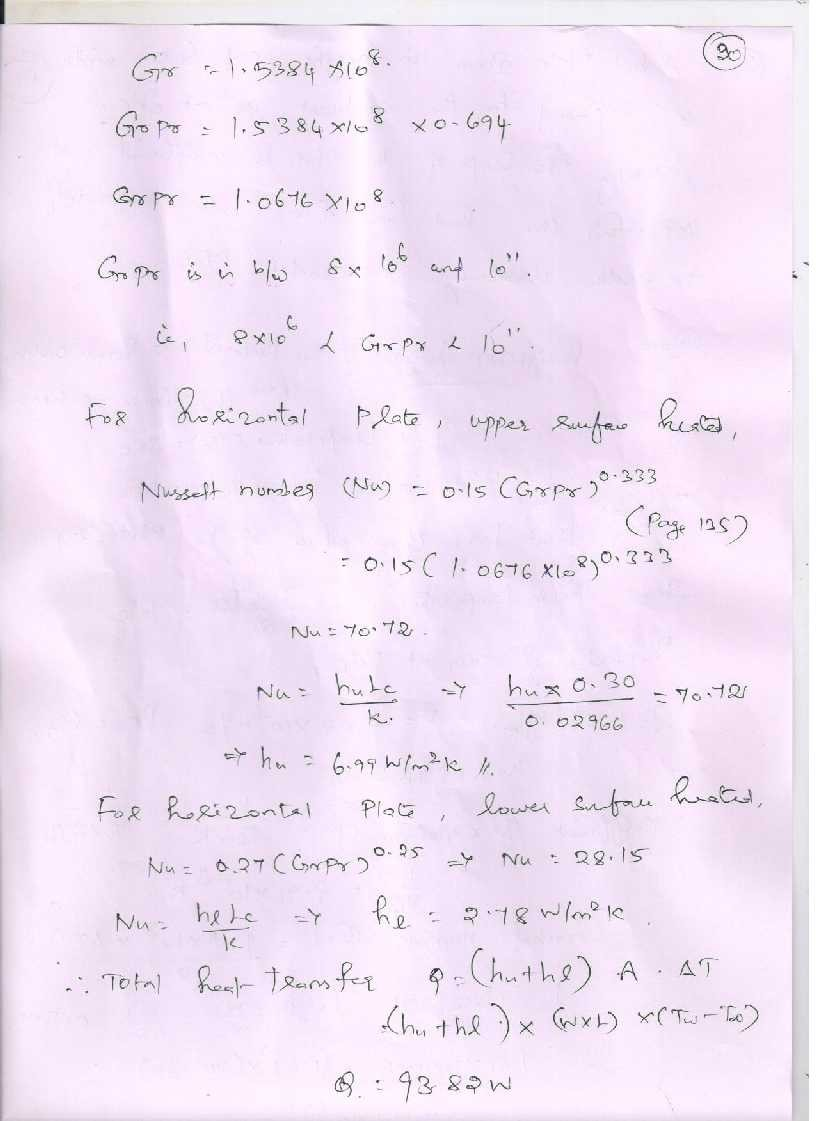 30
Gr = 1.5384 × 10⁸.
GrPr = 1.5384 × 10⁸ × 0.694
GrPr = 1.0676 × 10⁸
GrPr is in b/w 8 × 10⁶ and 10¹¹.
ie, 8×10⁶ < GrPr < 10¹¹.
For horizontal Plate, upper surface heated,
Nusselt number (Nu) = 0.15 (GrPr)^0.333
(Page 135)
= 0.15 (1.0676 × 10⁸)^0.333
Nu = 70.72.
Nu = huLc/k. ⇒ hu × 0.30/0.02966 = 70.72
⇒ hu = 6.99 W/m²K //.
For horizontal Plate, lower surface heated,
Nu = 0.27 (GrPr)^0.25 ⇒ Nu = 28.15
Nu = hlLc/k ⇒ hl = 2.78 W/m²K.
∴ Total heat transfer Q = (hu+hl) A . ΔT
= (hu + hl) × (W×L) × (Tw - T∞)
Q = 93.82 W